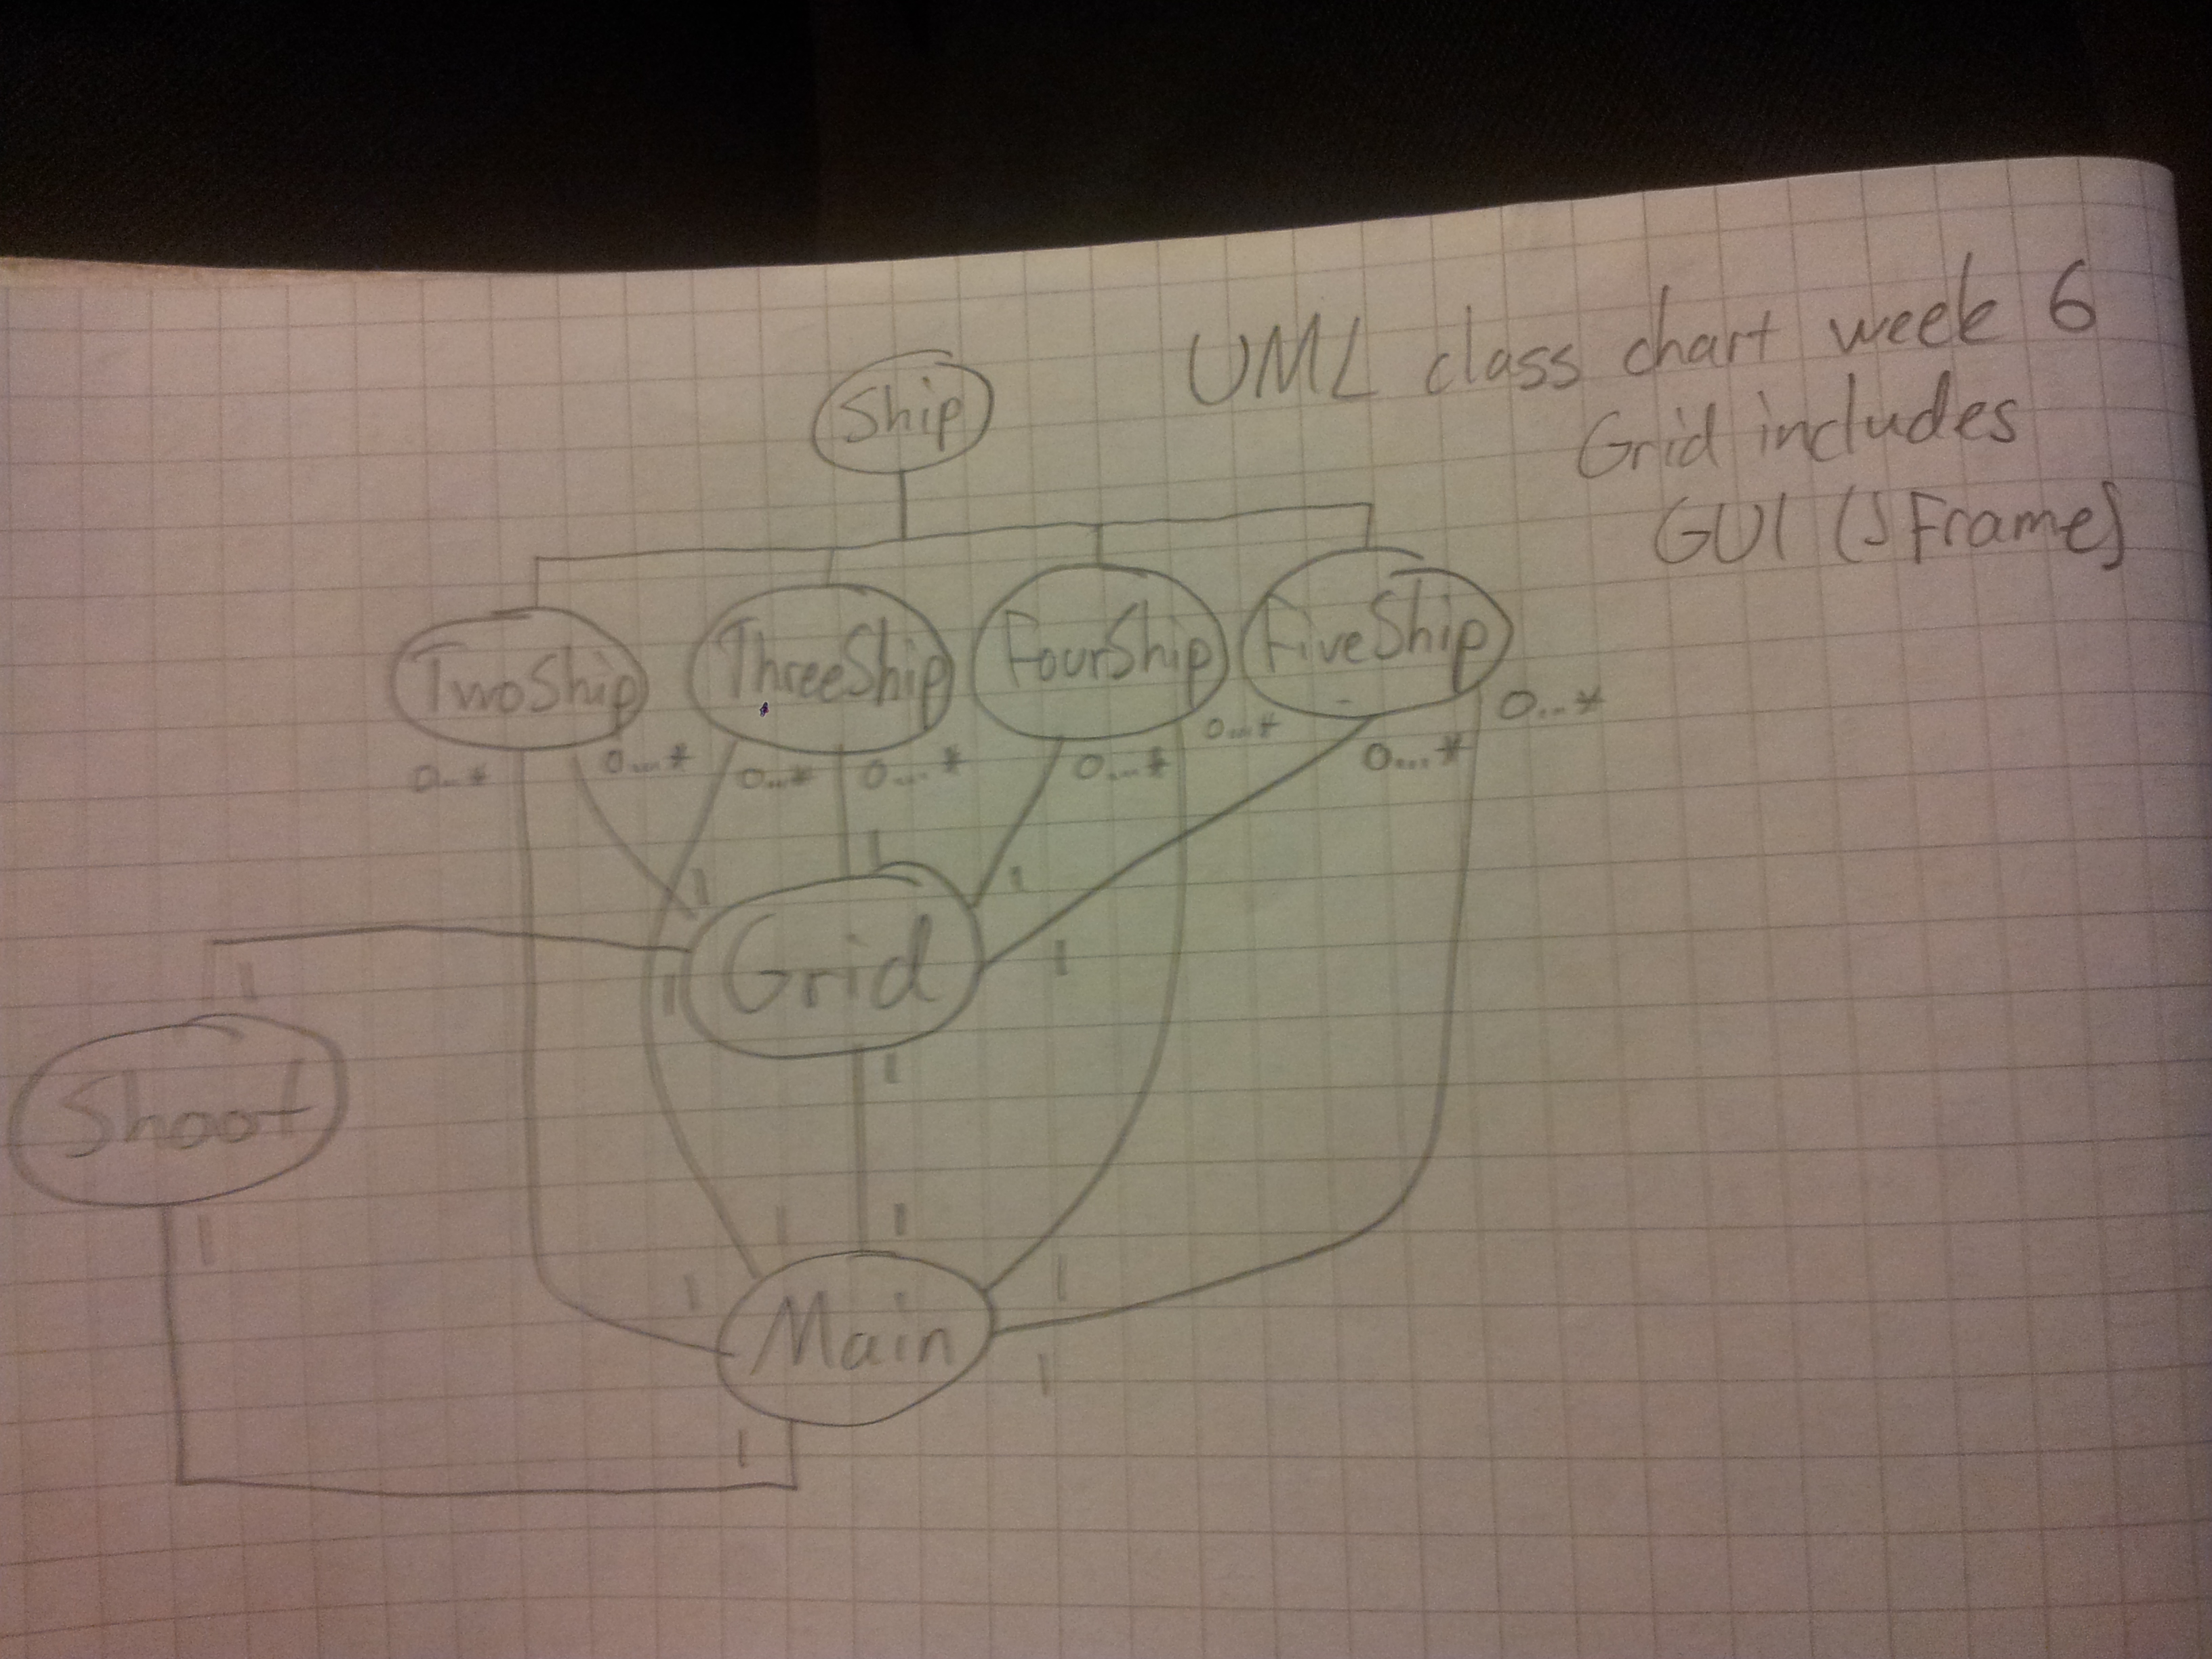 UML class chart week 6
Grid includes
GUI (JFrame)
Ship
TwoShip ThreeShip FourShip FiveShip
0...* 0...*
0...* 0...* 0...* 0...* 0...* 0...*
1
1 1
Grid
1 1 1
1
Shoot
1 1 1
1 1
Main
1
1